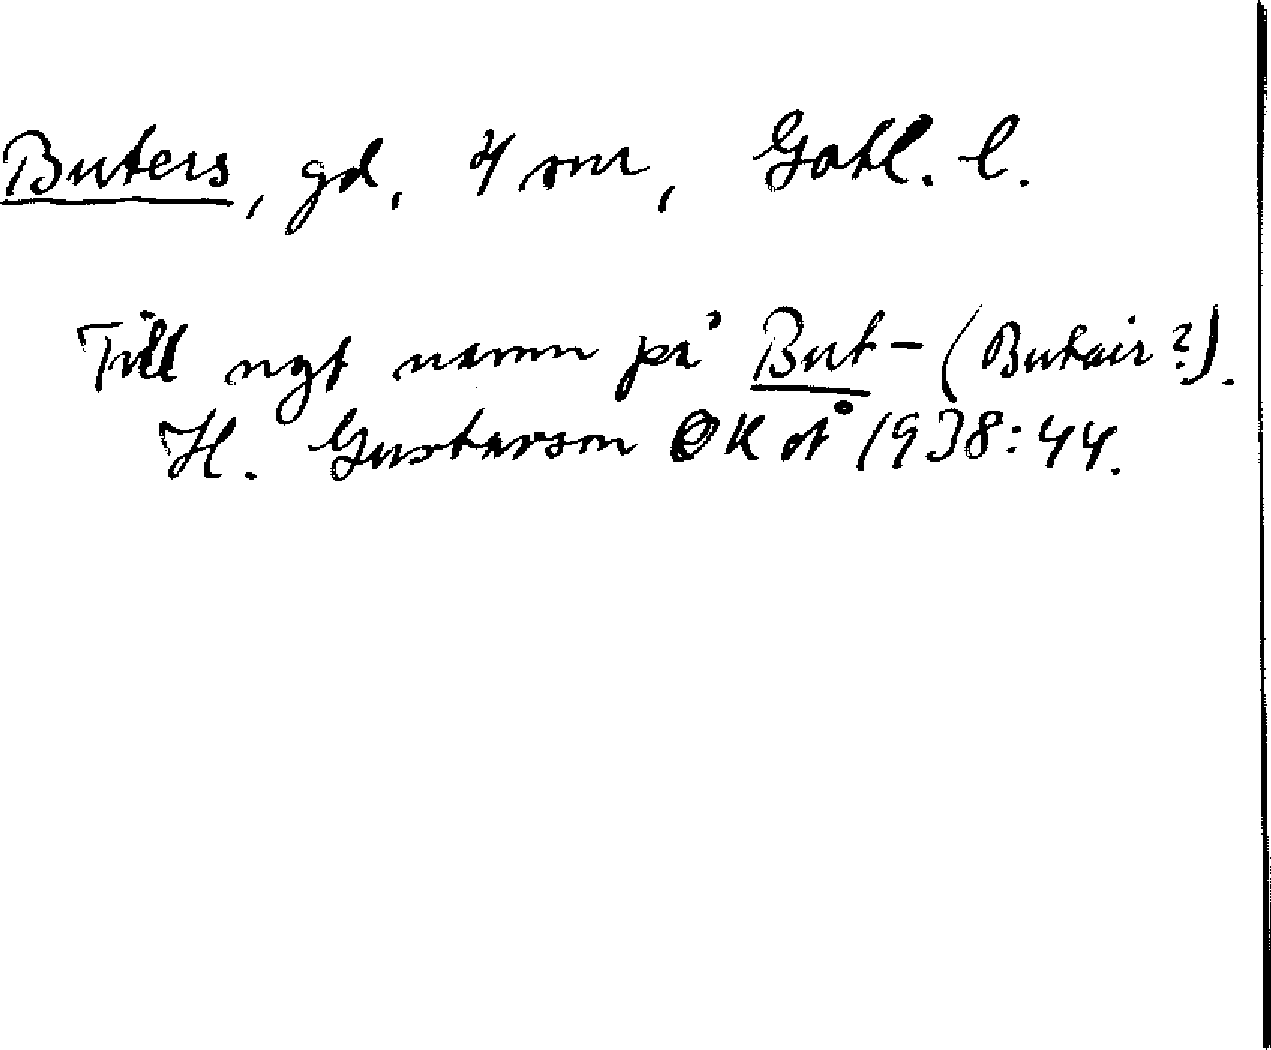 Buters, gd, 4 snr, Gotl. l.
Till ngt namn på But- (Butair?).
H. Gustavson OK åt 1938:44.